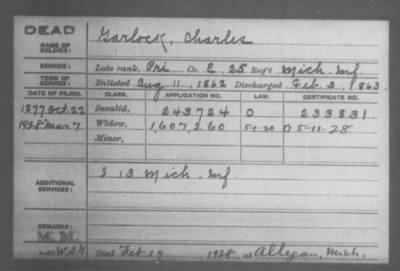 DEAD
NAME OF SOLDIER: Garlock, Charles
SERVICE: Late rank, Pri Co. E, 25 Reg't Mich. Inf.
TERM OF SERVICE: Enlisted Aug. 11, 1862 Discharged Feb 3, 1863
DATE OF FILING. CLASS. APPLICATION NO. LAW. CERTIFICATE NO.
1877 Oct. 22 Invalid, 243724 O 233831
1928 Mar 7 Widow, 1,607,260 5-1-20 5-11-28
Minor,
ADDITIONAL SERVICES: I 13 Mich. Inf
REMARKS:
Died Feb 19, 1928, at Allegan, Mich.